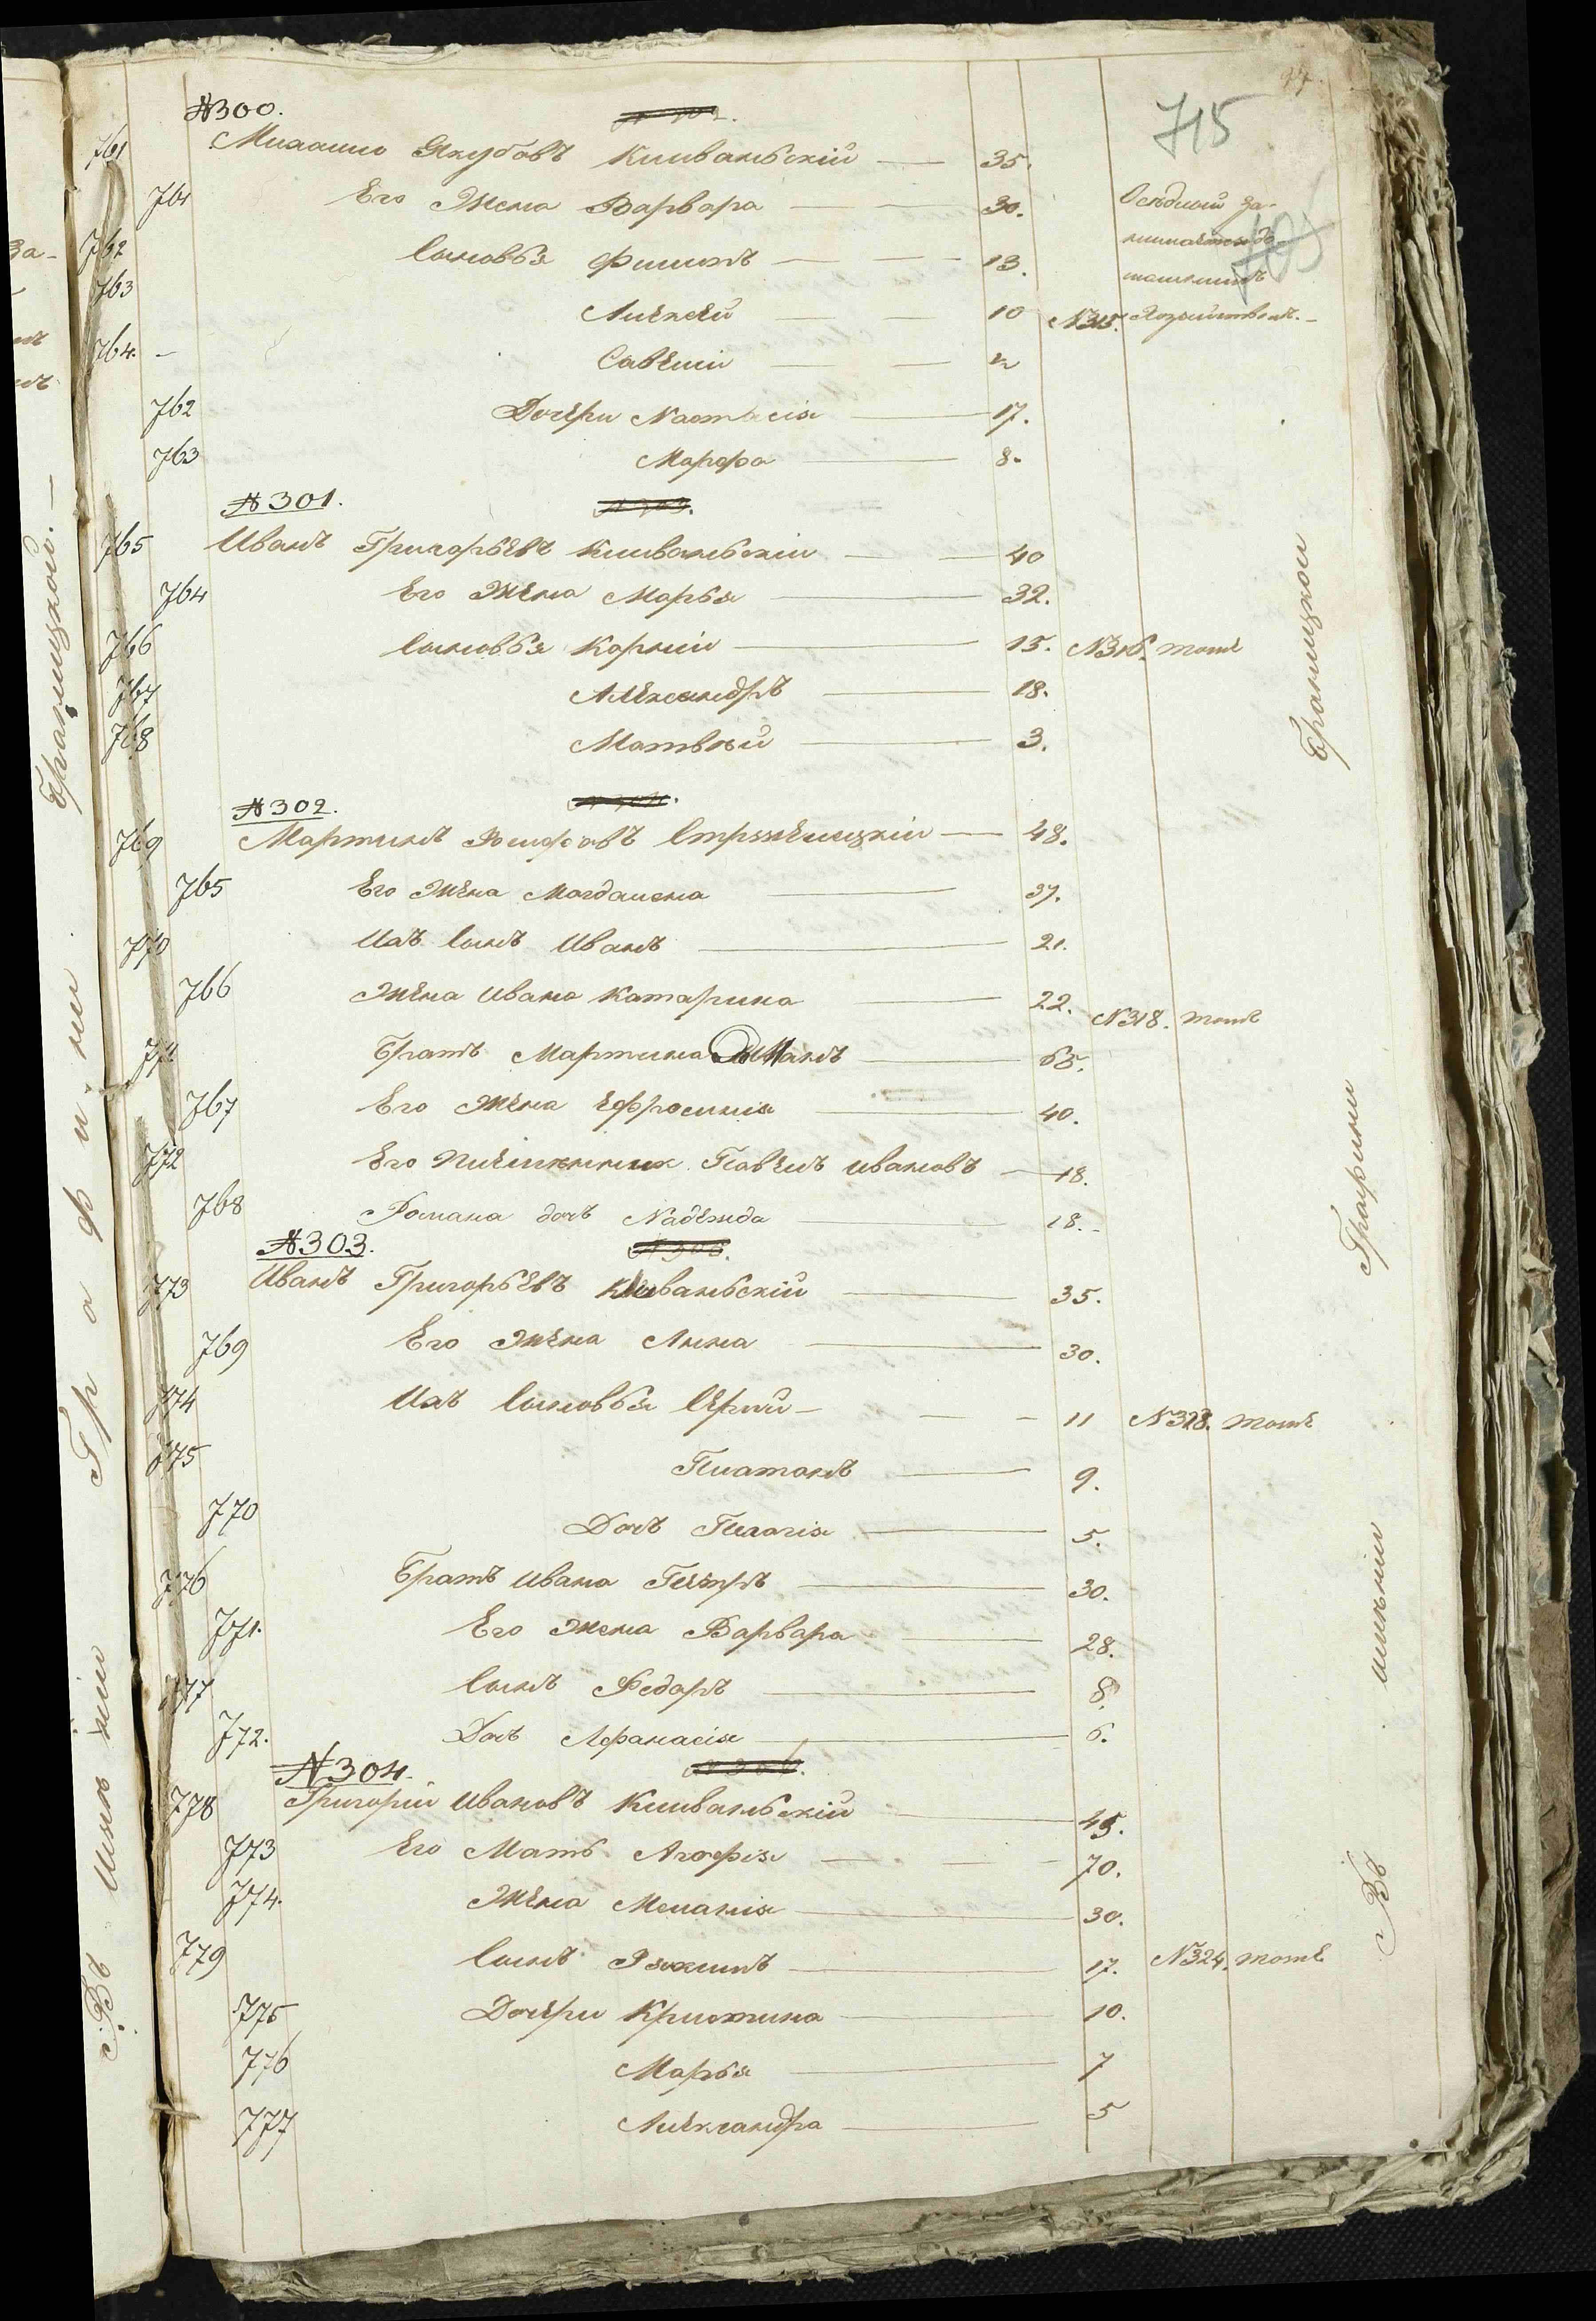 715
№300.
761 Михаило Якубовъ Кливаньскій — 35.
761 Его Жена Варвара — 30. Осѣдлый за-
762 Сыновья Филипъ — 13. нимается до-
машнимъ
763 Алексей — 10 №315. Хозяйствомъ.
764. Савелій — 2
762 Дочери Настасія — 17.
763 Марфа — 8.
№301.
765 Иванъ Григорьевъ Кливаньскій — 40
764 Его Жена Марья — 32.
766 Сыновья Корнѣй — 15. №316. тоже
767 Александръ — 18.
768 Матвѣй — 3.
№302.
769 Мартинъ Стржелецкій — 48.
765 Его Жена Магдалена — 37.
770 Ихъ Сынъ Иванъ — 21.
766 Жена Ивана Катарина — 22. №318. тоже
771 Братъ Мартина — 65.
767 Его Жена Ефросинія — 40.
772 Его Племянник Павелъ Ивановъ — 18.
768 Романа дочъ Надежда — 18.
№303.
773 Иванъ Григорьевъ Кливаньскій — 35.
769 Его Жена Анна — 30.
774 Ихъ Сыновья Сергій — 11 №323. тоже
775 Платонъ — 9.
770 Дочъ Пелагія — 5.
776 Братъ Ивана Петръ — 30.
771. Его Жена Варвара — 28.
777 Сынъ Федоръ — 8.
772. Дочъ Афанасія — 6.
№304.
778 Григорій Ивановъ Кливаньскій — 45.
773 Его Мать Агафія — 70.
774. Жена Меланія — 30.
779 Сынъ — 17. №324. тоже
775 Дочери Кристина — 10.
776 Марья — 7
777 Александра — 5
Въ имѣніи Графини Браницкой
Въ имѣніи Графини Браницкой. —